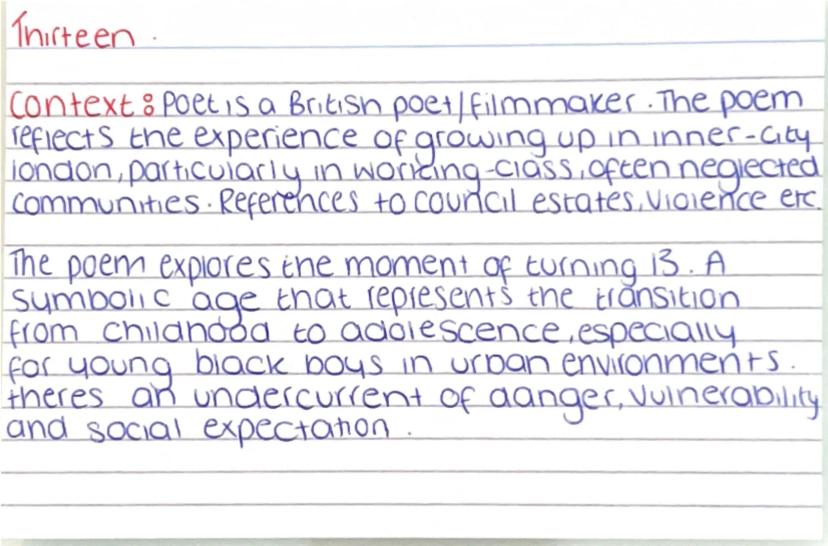 Thirteen.
Context: Poet is a British poet/filmmaker. The poem
reflects the experience of growing up in inner-city
london, particularly in working-class, often neglected
communities. References to council estates, violence etc.
The poem explores the moment of turning 13. A
symbolic age that represents the transition
from childhood to adolescence, especially
for young black boys in urban environments.
theres an undercurrent of danger, vulnerability
and social expectation.